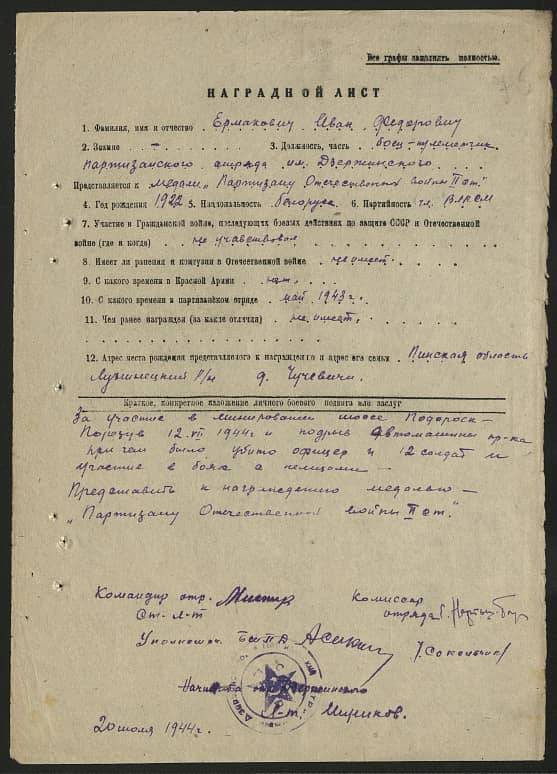 Все графы заполнять полностью.
НАГРАДНОЙ ЛИСТ
1. Фамилия, имя и отчество Ермакович Иван Федорович
2. Звание — 3. Должность, часть боец-пулеметчик
партизанского отряда им. Дзержинского
Представляется к медали „Партизану Отечественной войны II ст."
4. Год рождения 1922 5. Национальность белорус 6. Партийность чл. ВЛКСМ
7. Участие в Гражданской войне, последующих боевых действиях по защите СССР и Отечественной
войне (где и когда) не участвовал
8. Имеет ли ранения и контузии в Отечественной войне не имеет.
9. С какого времени в Красной Армии нет.
10. С какого времени в партизанском отряде май 1943 г.
11. Чем ранее награжден (за какие отличия) не имеет.
12. Адрес места рождения представляемого к награждению и адрес его семьи Пинская область
Лунинецкий р/н д. Чучевичи.
Краткое, конкретное изложение личного боевого подвига или заслуг
За участие в минировании шоссе Подороск —
12.VII 1944 г и подрыв автомашины пр-ка
при чем было убито офицер и 12 солдат и
участие в боях с немцами —
Представить к награждению медалью —
„Партизану Отечественной войны II ст."
Командир отр. Комиссар
Ст. л-т отряда
Уполномоч.
20 июля 1944 г.